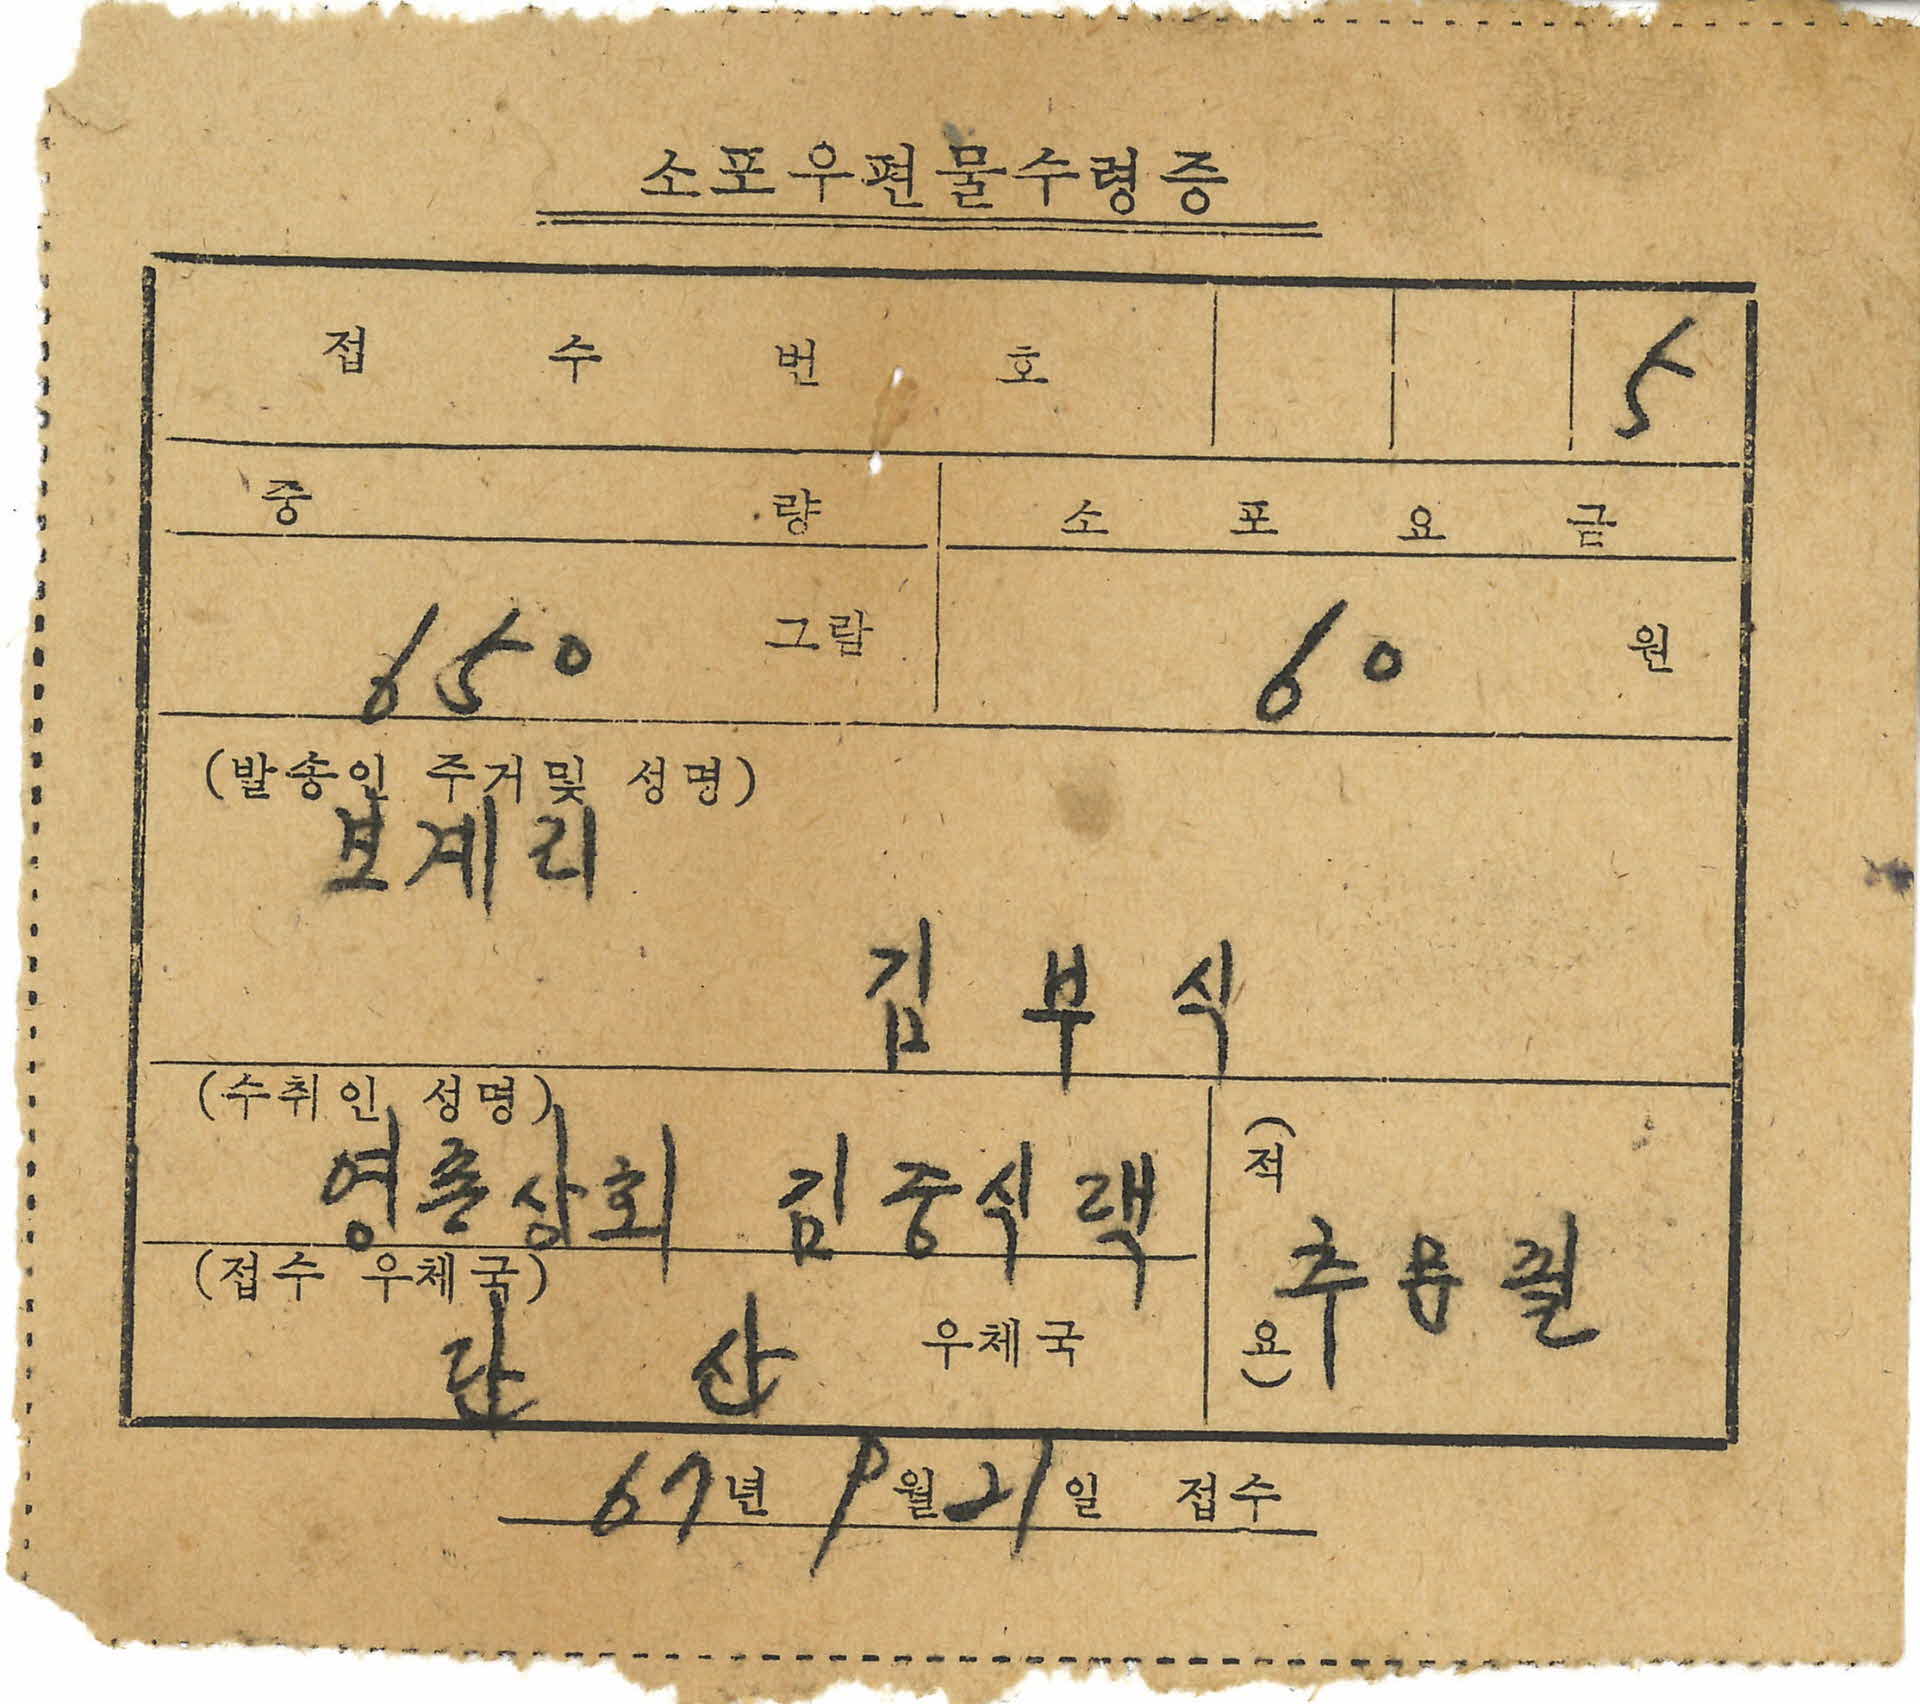 소포우편물수령증
접수번호 5
중량 소포요금
650 그람 60 원
(발송인 주거및 성명)
보계리
김부식
(수취인 성명)
영춘상회 김중식댁
(적요)
(접수 우체국)
단산 우체국
67년 9월 21일 접수